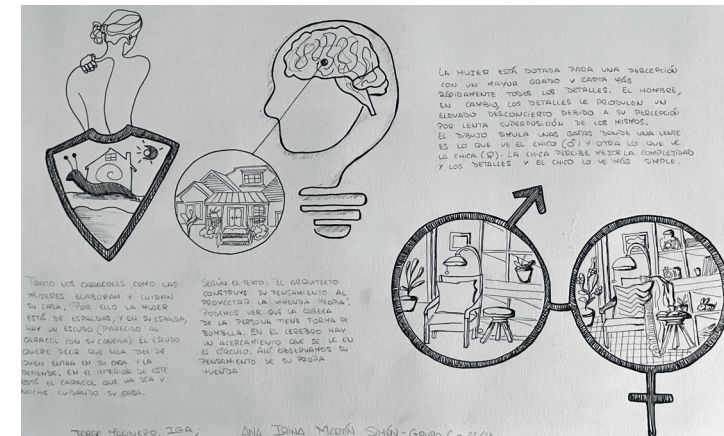 LA MUJER ESTÁ DOTADA PARA UNA PERCEPCIÓN
CON UN MAYOR GRADO Y CAPTA MÁS
RÁPIDAMENTE TODOS LOS DETALLES. EL HOMBRE,
EN CAMBIO, LOS DETALLES LE PRODUCEN UN
ELEVADO DESCONCIERTO DEBIDO A SU PERCEPCIÓN
POR LENTA SUPERPOSICIÓN DE LOS MISMOS.
EL DIBUJO SIMULA UNAS GAFAS DONDE UNA LENTE
ES LO QUE VE EL CHICO (♂) Y OTRA LO QUE VE
LA CHICA (♀). LA CHICA PERCIBE MEJOR LA COMPLEJIDAD
Y LOS DETALLES Y EL CHICO LO VE MÁS SIMPLE.
TANTO LOS CARACOLES COMO LAS
MUJERES ELABORAN Y CUIDAN
SU CASA. POR ELLO LA MUJER
ESTÁ DE ESPALDAS, Y EN SU ESPALDA,
HAY UN ESCUDO (PARECIDO AL
CARACOL CON SU CONCHA). EL ESCUDO
QUIERE DECIR QUE ELLA DECIDE
QUIEN ENTRA EN SU CASA Y LA
DEFIENDE. EN EL INTERIOR DE ESTE
ESTÁ EL CARACOL QUE VA DÍA Y
NOCHE CUIDANDO SU CASA.
SEGÚN EL TEXTO: "EL ARQUITECTO
CONSTRUYE SU PENSAMIENTO AL
PROYECTAR LA VIVIENDA PROPIA".
PODEMOS VER QUE LA CABEZA
DE LA PERSONA TIENE FORMA DE
BOMBILLA. EN EL CEREBRO HAY
UN ACERCAMIENTO QUE SE VE EN
EL CÍRCULO. AHÍ OBSERVAMOS SU
PENSAMIENTO DE SU PROPIA
VIVIENDA
JORGE MOLINERO; IGA; ANA IRINA MARTÍN SIMÓN - GRUPO C